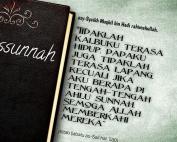 asy-Syaikh Muqbil bin Hadi rahimahullah:
ssunnah
"TIDAKLAH
KALBUKU TERASA
HIDUP DAN AKU
JUGA TIDAKLAH
TERASA LAPANG
KECUALI JIKA
AKU BERADA DI
TENGAH-TENGAH
AHLU SUNNAH
SEMOGA ALLAH
MEMBERKAHI
MEREKA"